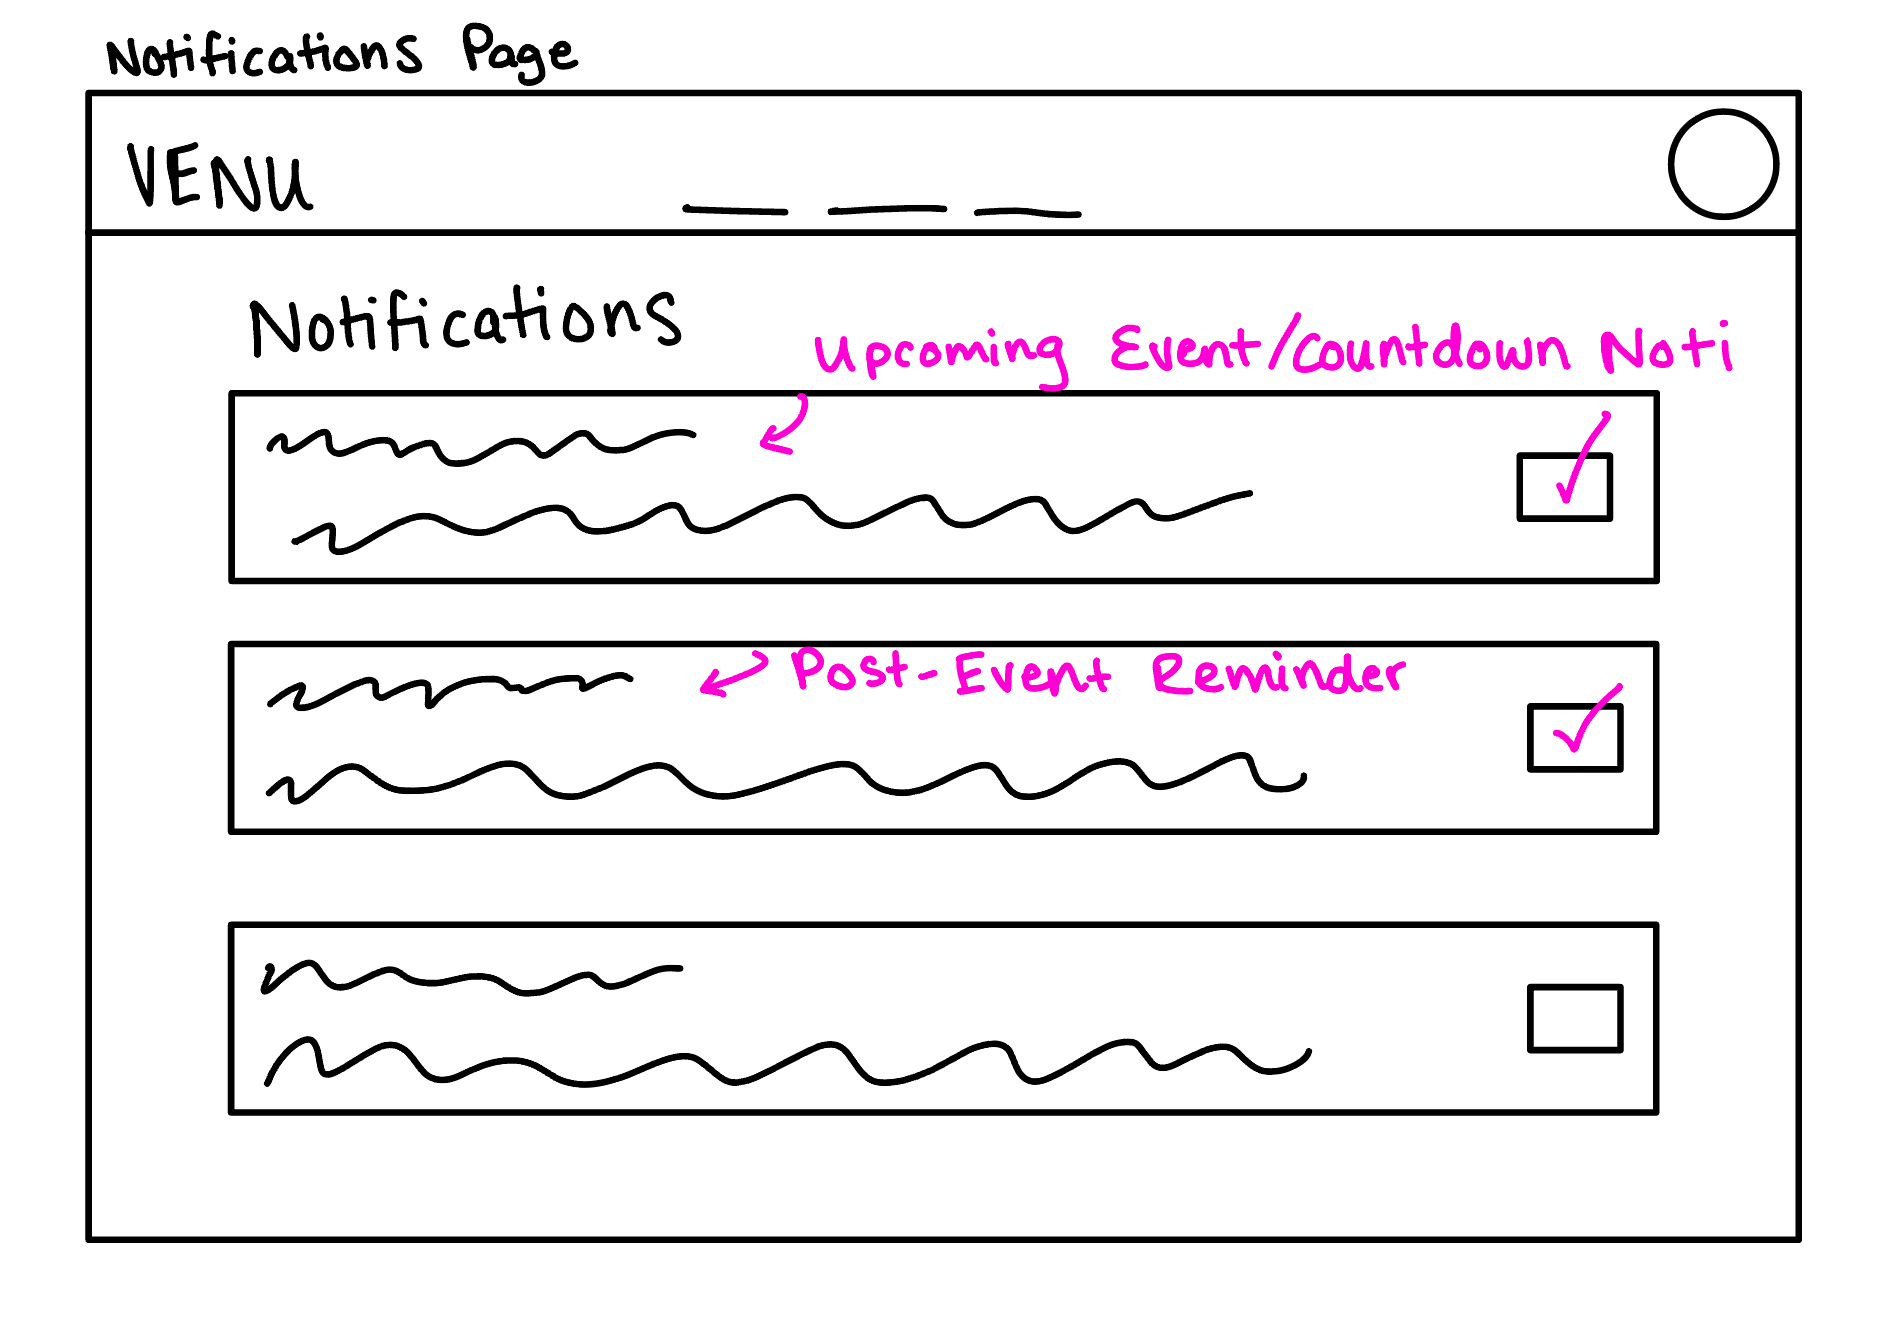 Notifications Page
VENU
Notifications
Upcoming Event/Countdown Noti
Post-Event Reminder